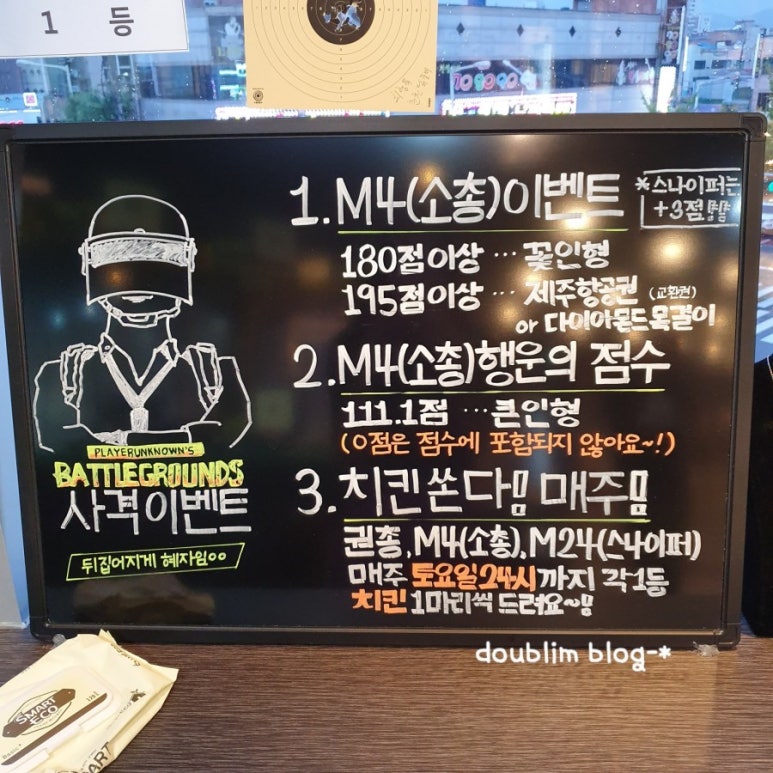 1 등
1. M4(소총)이벤트
*스나이퍼는
+3점!!
180점 이상 … 꽃인형
195점 이상 … 제주항공권 (교환권)
or 다이아몬드 목걸이
2. M4(소총)행운의 점수
111.1점 …큰인형
(0점은 점수에 포함되지 않아요~!)
3. 치킨 쏜다!! 매주!!
권총, M4(소총), M24(스나이퍼)
매주 토요일 24시 까지 각1등
치킨 1마리씩 드려요~!!
PLAYERUNKNOWN'S
BATTLEGROUNDS
사격이벤트
뒤집어지게 혜자임ㅇㅇ
doublim blog-*
SMART
ECO